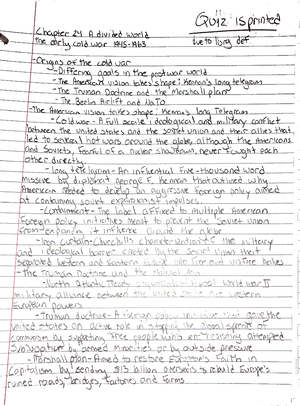 Quiz is printed
Chapter 24 A divided world
The early cold war 1945-1963
due to long def
-Origins of the cold war
-Differing goals in the postwar world
-The American vision takes shape: Kennan's long telegram
-The Truman Doctrine and the Marshall plan
-The Berlin Airlift and NATO
-The American vision takes shape: Kennan's long Telegram
-Cold war- A full scale ideological and military conflict
between the united states and the soviet union and their allies that
led to several hot wars around the globe, although the Americans
and Soviets, fearful of a nuclear showdown, never fought each
other directly.
-long telegram- An influential five-thousand word
missive by diplomat george F. Kennan that outlined why
American needed to develop an aggressive foreign policy aimed
at containing soviet expansionist impulses
-Containment- The label affixed to multiple American
Foreign policy initiatives meant to prevent the Soviet union
from expanding it influence around the globe
-Iron curtain- Churchill's the military
and ideological barrier created by the soviet union that
separated western and Eastern Europe into free and unfree
-The Truman Doctrine and the Marshall plan
-North Atlantic Treaty world war II
military alliance between the united states and western
European powers
-Truman doctrine- A foreign policy initiative that gave the
united states an active role in stopping the global spread of
communism by supporting free people resisting attempted
subjugation by armed minorities or by outside pressure
-Marshall plan- Aimed to restore European's Faith in
capitalism by sending $13 billion overseas to rebuild Europe's
ruined roads, bridges, factories and farms